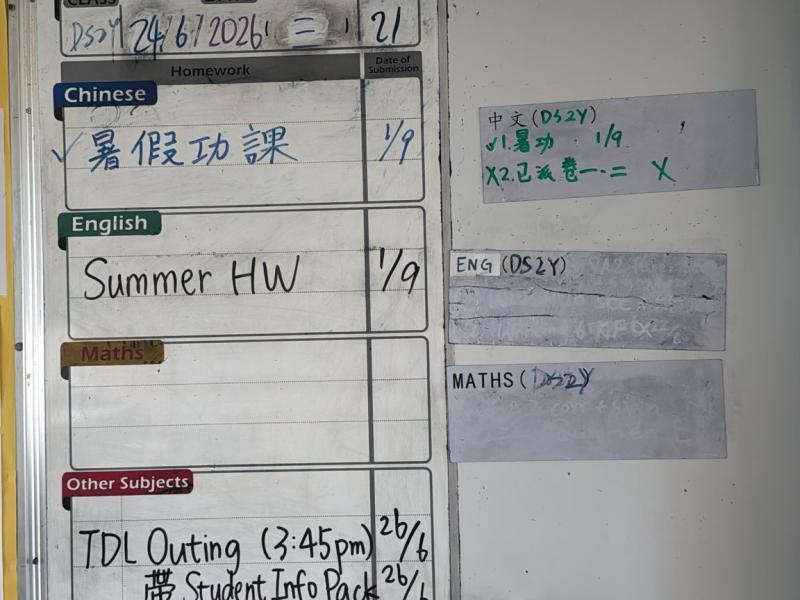 CLASS
DS2Y 24/6/2026 二 21
Homework Date of Submission
Chinese
✓ 暑假功課 1/9
English
Summer HW 1/9
Maths
Other Subjects
TDL Outing (3:45pm) 26/6
帶 Student Info Pack 26/6
中文(DS2Y)
✓1.暑功 1/9
X2.已派卷一.二 X
ENG (DS2Y)
MATHS (DS2Y)